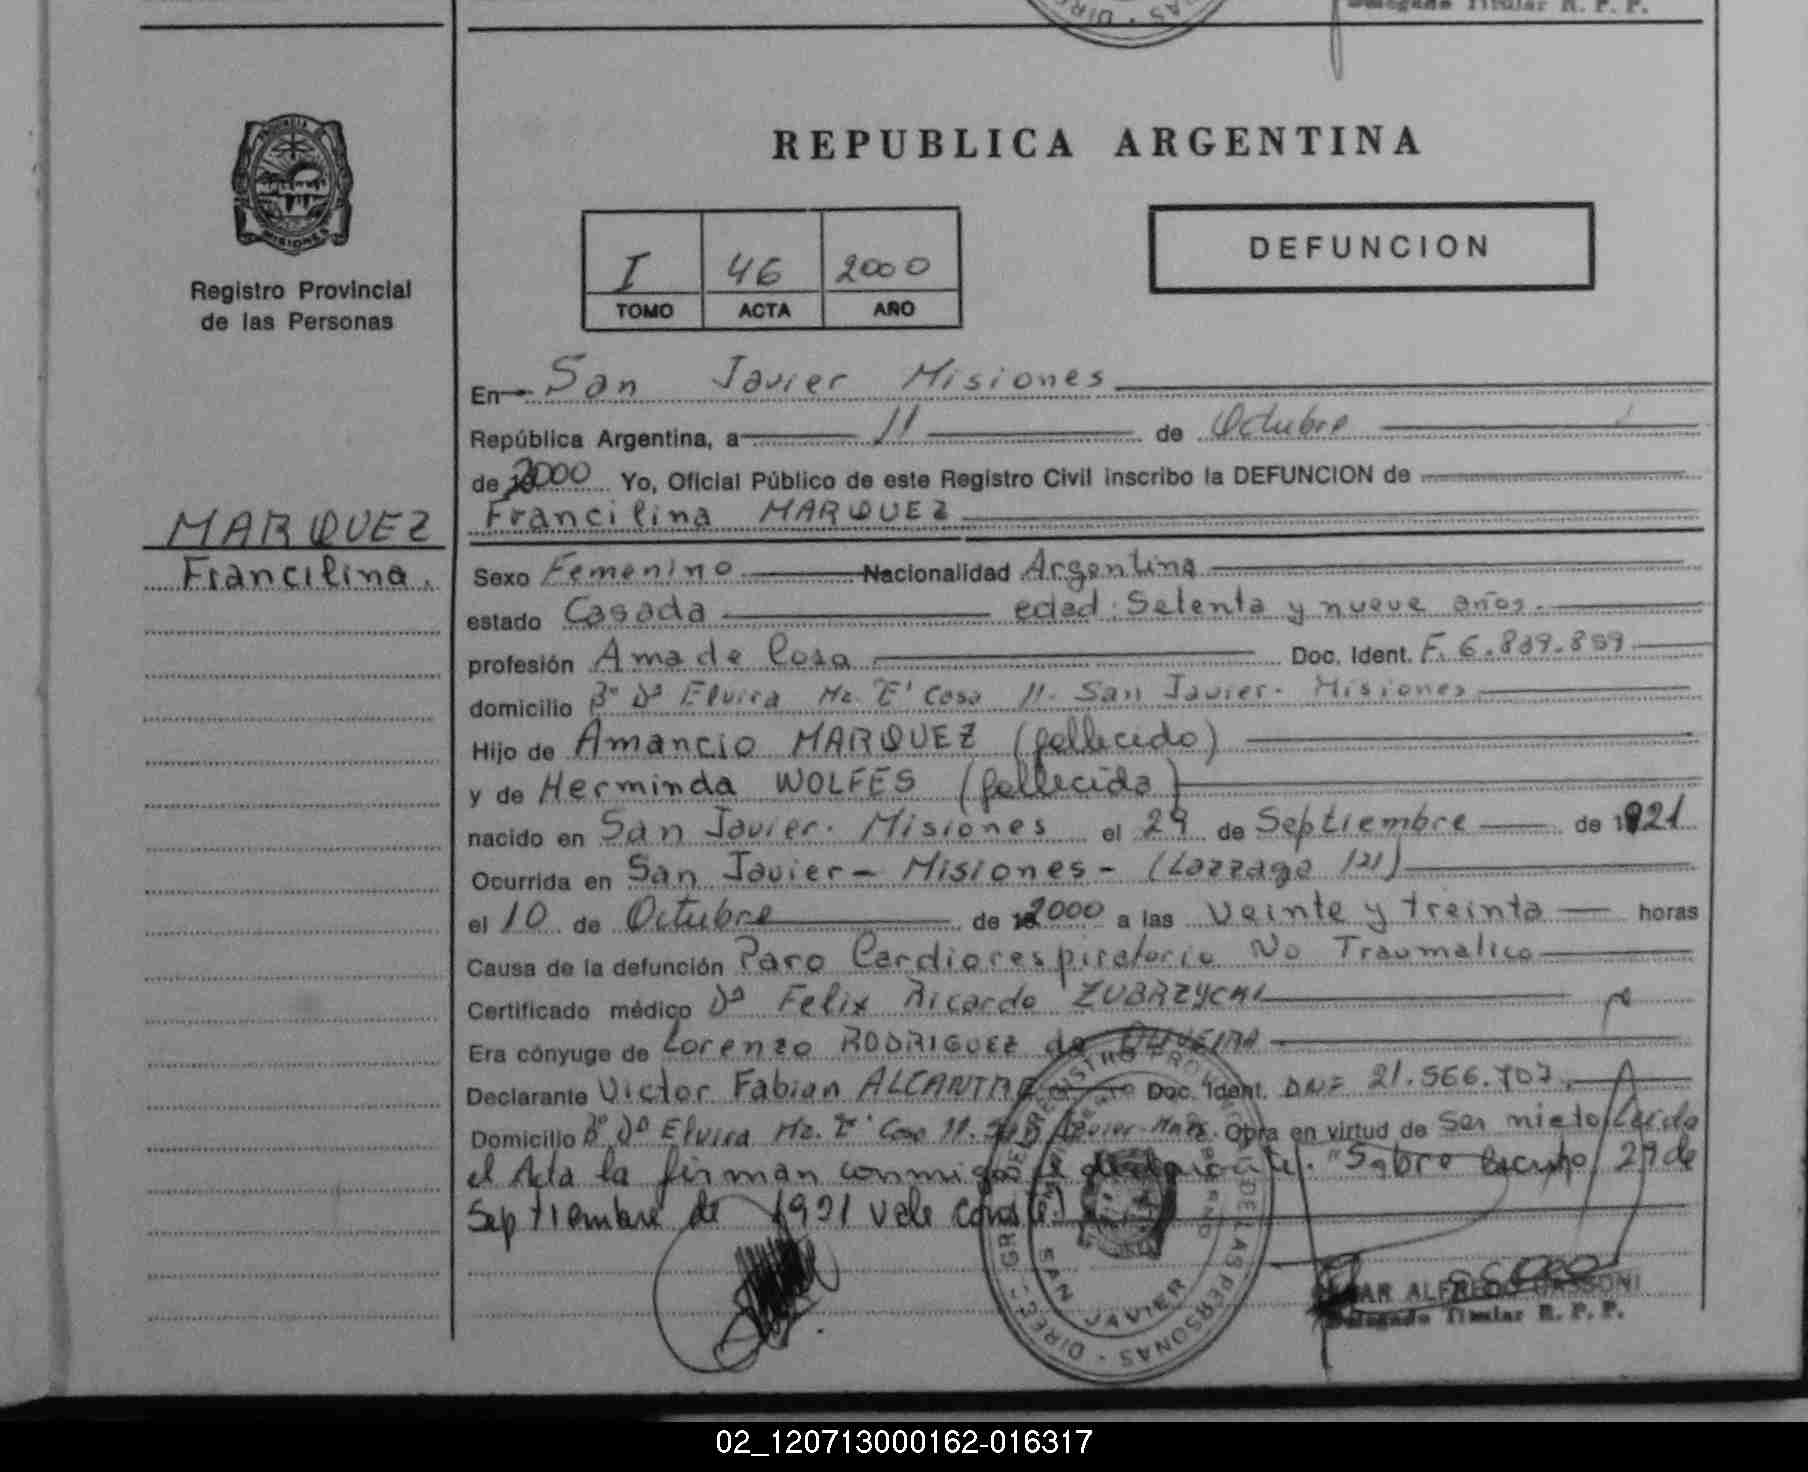 Delegado Titular R. P. P.
PROVINCIA
MISIONES
Registro Provincial
de las Personas
MARQUEZ
Francilina.
REPUBLICA ARGENTINA
I 46 2000
TOMO ACTA AÑO
DEFUNCION
En San Javier Misiones
República Argentina, a 11 de Octubre
de 2000 Yo, Oficial Público de este Registro Civil inscribo la DEFUNCION de
Francilina MARQUEZ
Sexo Femenino Nacionalidad Argentina
estado Casada edad: Setenta y nueve años.
profesión Ama de Casa Doc. Ident. F. 6.839.859
domicilio Bº Dª Elvira Mz. "E" Casa 11. San Javier. Misiones
Hijo de Amancio MARQUEZ (fallecido)
y de Herminda WOLFES (fallecida)
nacido en San Javier. Misiones el 29 de Septiembre de 1921
Ocurrida en San Javier - Misiones - (Lazzaga 121)
el 10 de Octubre de 2000 a las veinte y treinta horas
Causa de la defunción Paro Cardiorespiratorio No Traumatico
Certificado médico Felix Ricardo ZUBRZYCKI
Era cónyuge de Lorenzo RODRIGUEZ da OLIVEIRA
Declarante Victor Fabian Doc. Ident. DNI 21.566.707
Domicilio Bº Dª Elvira Mz. "E" Casa 11. San Javier Obra en virtud de ser nieto Leída
el Acta la firman conmigo el declarante. "Sobre Escrito 29 de
Septiembre de 1921 vale
SAN JAVIER
ALFREDO
Delegado Titular R. P. P.
02_120713000162-016317